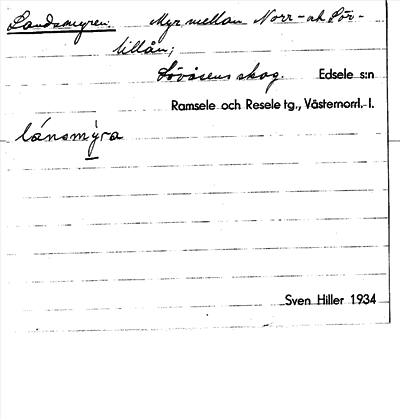 Landsmyren. Myr mellan Norr- och Sör-
tillån;
Lövåsens skog. Edsele s:n
Ramsele och Resele tg., Västernorrl. l.
lánsmýra
Sven Hiller 1934